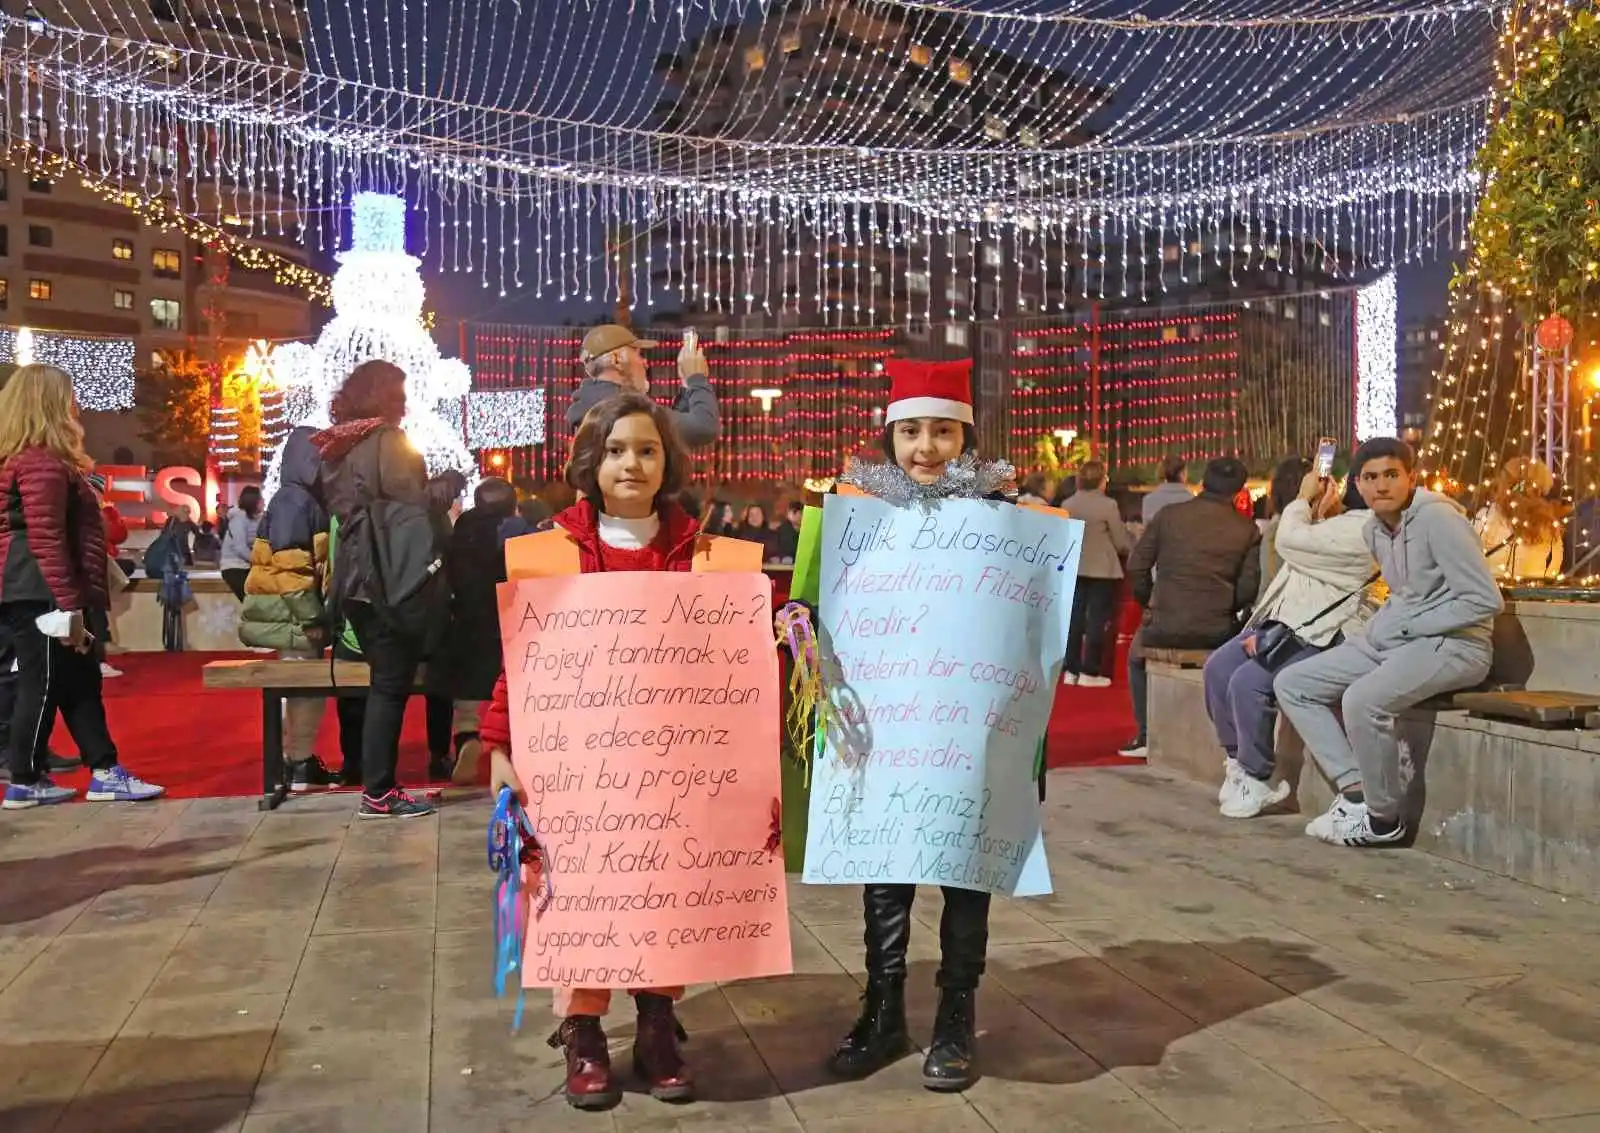 ES
Amacımız Nedir?
Projeyi tanıtmak ve
hazırladıklarımızdan
elde edeceğimiz
geliri bu projeye
bağışlamak.
Nasıl Katkı Sunarız?
Standımızdan alış-veriş
yaparak ve çevrenize
duyurarak.
İyilik Bulaşıcıdır!
Mezitli'nin Filizleri
Nedir?
Sitelerin bir çocuğu
okutmak için burs
vermesidir.
Biz Kimiz?
Mezitli Kent Konseyi
Çocuk Meclisiyiz